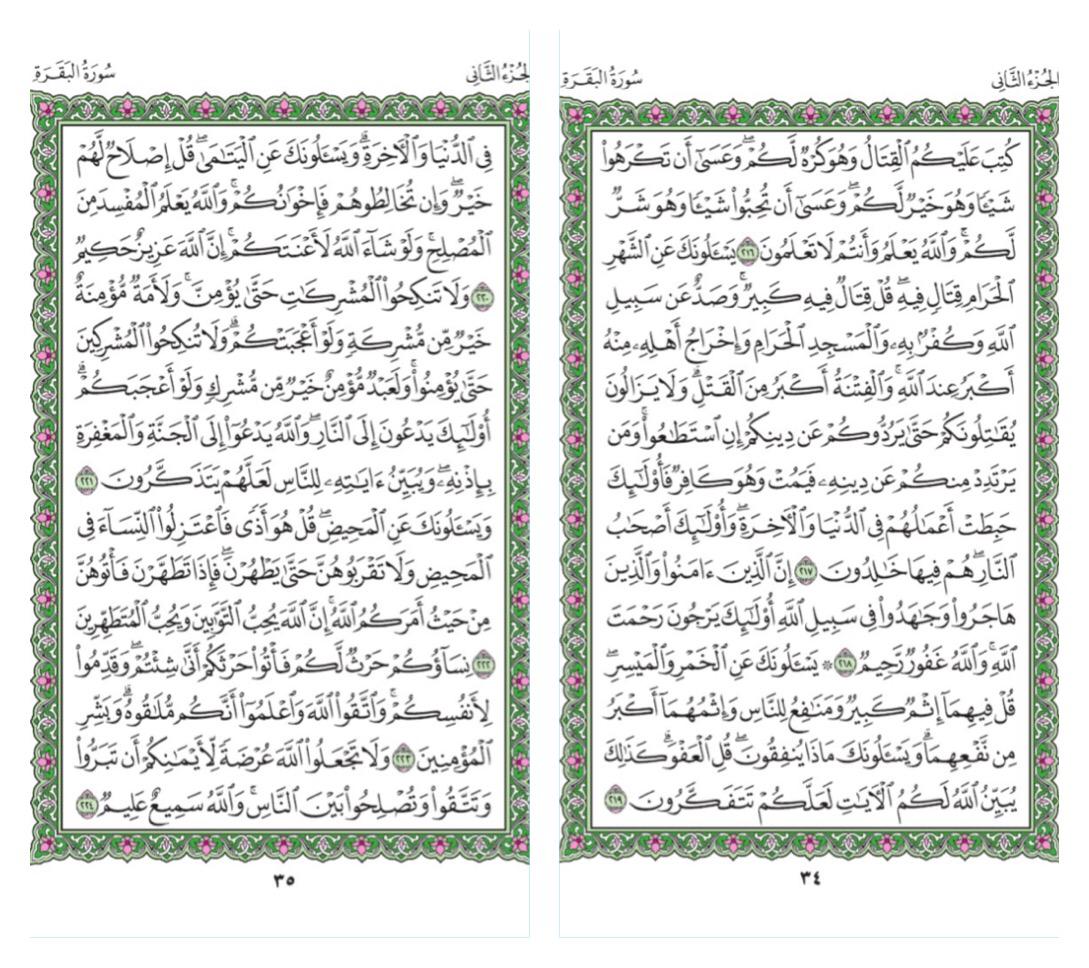 الجُزْءُ الثَّانِي
سُورَةُ البَقَرَةِ
كُتِبَ عَلَيْكُمُ ٱلْقِتَالُ وَهُوَ كُرْهٌ لَّكُمْ ۖ وَعَسَىٰٓ أَن تَكْرَهُوا۟
شَيْـًٔا وَهُوَ خَيْرٌ لَّكُمْ ۖ وَعَسَىٰٓ أَن تُحِبُّوا۟ شَيْـًٔا وَهُوَ شَرٌّ
لَّكُمْ ۗ وَٱللَّهُ يَعْلَمُ وَأَنتُمْ لَا تَعْلَمُونَ ٢١٦ يَسْـَٔلُونَكَ عَنِ ٱلشَّهْرِ
ٱلْحَرَامِ قِتَالٍ فِيهِ ۖ قُلْ قِتَالٌ فِيهِ كَبِيرٌ ۖ وَصَدٌّ عَن سَبِيلِ
ٱللَّهِ وَكُفْرٌۢ بِهِۦ وَٱلْمَسْجِدِ ٱلْحَرَامِ وَإِخْرَاجُ أَهْلِهِۦ مِنْهُ
أَكْبَرُ عِندَ ٱللَّهِ ۚ وَٱلْفِتْنَةُ أَكْبَرُ مِنَ ٱلْقَتْلِ ۗ وَلَا يَزَالُونَ
يُقَـٰتِلُونَكُمْ حَتَّىٰ يَرُدُّوكُمْ عَن دِينِكُمْ إِنِ ٱسْتَطَـٰعُوا۟ ۚ وَمَن
يَرْتَدِدْ مِنكُمْ عَن دِينِهِۦ فَيَمُتْ وَهُوَ كَافِرٌ فَأُو۟لَـٰٓئِكَ
حَبِطَتْ أَعْمَـٰلُهُمْ فِى ٱلدُّنْيَا وَٱلْـَٔاخِرَةِ ۖ وَأُو۟لَـٰٓئِكَ أَصْحَـٰبُ
ٱلنَّارِ ۖ هُمْ فِيهَا خَـٰلِدُونَ ٢١٧ إِنَّ ٱلَّذِينَ ءَامَنُوا۟ وَٱلَّذِينَ
هَاجَرُوا۟ وَجَـٰهَدُوا۟ فِى سَبِيلِ ٱللَّهِ أُو۟لَـٰٓئِكَ يَرْجُونَ رَحْمَتَ
ٱللَّهِ ۚ وَٱللَّهُ غَفُورٌ رَّحِيمٌ ٢١٨ ۞ يَسْـَٔلُونَكَ عَنِ ٱلْخَمْرِ وَٱلْمَيْسِرِ ۖ
قُلْ فِيهِمَآ إِثْمٌ كَبِيرٌ وَمَنَـٰفِعُ لِلنَّاسِ وَإِثْمُهُمَآ أَكْبَرُ
مِن نَّفْعِهِمَا ۗ وَيَسْـَٔلُونَكَ مَاذَا يُنفِقُونَ ۖ قُلِ ٱلْعَفْوَ ۗ كَذَٰلِكَ
يُبَيِّنُ ٱللَّهُ لَكُمُ ٱلْـَٔايَـٰتِ لَعَلَّكُمْ تَتَفَكَّرُونَ ٢١٩
٣٤
الجُزْءُ الثَّانِي
سُورَةُ البَقَرَةِ
فِى ٱلدُّنْيَا وَٱلْـَٔاخِرَةِ ۗ وَيَسْـَٔلُونَكَ عَنِ ٱلْيَتَـٰمَىٰ ۖ قُلْ إِصْلَاحٌ لَّهُمْ
خَيْرٌ ۖ وَإِن تُخَالِطُوهُمْ فَإِخْوَٰنُكُمْ ۚ وَٱللَّهُ يَعْلَمُ ٱلْمُفْسِدَ مِنَ
ٱلْمُصْلِحِ ۚ وَلَوْ شَآءَ ٱللَّهُ لَأَعْنَتَكُمْ ۚ إِنَّ ٱللَّهَ عَزِيزٌ حَكِيمٌ
٢٢٠ وَلَا تَنكِحُوا۟ ٱلْمُشْرِكَـٰتِ حَتَّىٰ يُؤْمِنَّ ۚ وَلَأَمَةٌ مُّؤْمِنَةٌ
خَيْرٌ مِّن مُّشْرِكَةٍ وَلَوْ أَعْجَبَتْكُمْ ۗ وَلَا تُنكِحُوا۟ ٱلْمُشْرِكِينَ
حَتَّىٰ يُؤْمِنُوا۟ ۚ وَلَعَبْدٌ مُّؤْمِنٌ خَيْرٌ مِّن مُّشْرِكٍ وَلَوْ أَعْجَبَكُمْ ۗ
أُو۟لَـٰٓئِكَ يَدْعُونَ إِلَى ٱلنَّارِ ۖ وَٱللَّهُ يَدْعُوٓا۟ إِلَى ٱلْجَنَّةِ وَٱلْمَغْفِرَةِ
بِإِذْنِهِۦ ۖ وَيُبَيِّنُ ءَايَـٰتِهِۦ لِلنَّاسِ لَعَلَّهُمْ يَتَذَكَّرُونَ ٢٢١
وَيَسْـَٔلُونَكَ عَنِ ٱلْمَحِيضِ ۖ قُلْ هُوَ أَذًى فَٱعْتَزِلُوا۟ ٱلنِّسَآءَ فِى
ٱلْمَحِيضِ ۖ وَلَا تَقْرَبُوهُنَّ حَتَّىٰ يَطْهُرْنَ ۖ فَإِذَا تَطَهَّرْنَ فَأْتُوهُنَّ
مِنْ حَيْثُ أَمَرَكُمُ ٱللَّهُ ۚ إِنَّ ٱللَّهَ يُحِبُّ ٱلتَّوَّٰبِينَ وَيُحِبُّ ٱلْمُتَطَهِّرِينَ
٢٢٢ نِسَآؤُكُمْ حَرْثٌ لَّكُمْ فَأْتُوا۟ حَرْثَكُمْ أَنَّىٰ شِئْتُمْ ۖ وَقَدِّمُوا۟
لِأَنفُسِكُمْ ۚ وَٱتَّقُوا۟ ٱللَّهَ وَٱعْلَمُوٓا۟ أَنَّكُم مُّلَـٰقُوهُ ۗ وَبَشِّرِ
ٱلْمُؤْمِنِينَ ٢٢٣ وَلَا تَجْعَلُوا۟ ٱللَّهَ عُرْضَةً لِّأَيْمَـٰنِكُمْ أَن تَبَرُّوا۟
وَتَتَّقُوا۟ وَتُصْلِحُوا۟ بَيْنَ ٱلنَّاسِ ۗ وَٱللَّهُ سَمِيعٌ عَلِيمٌ ٢٢٤
٣٥